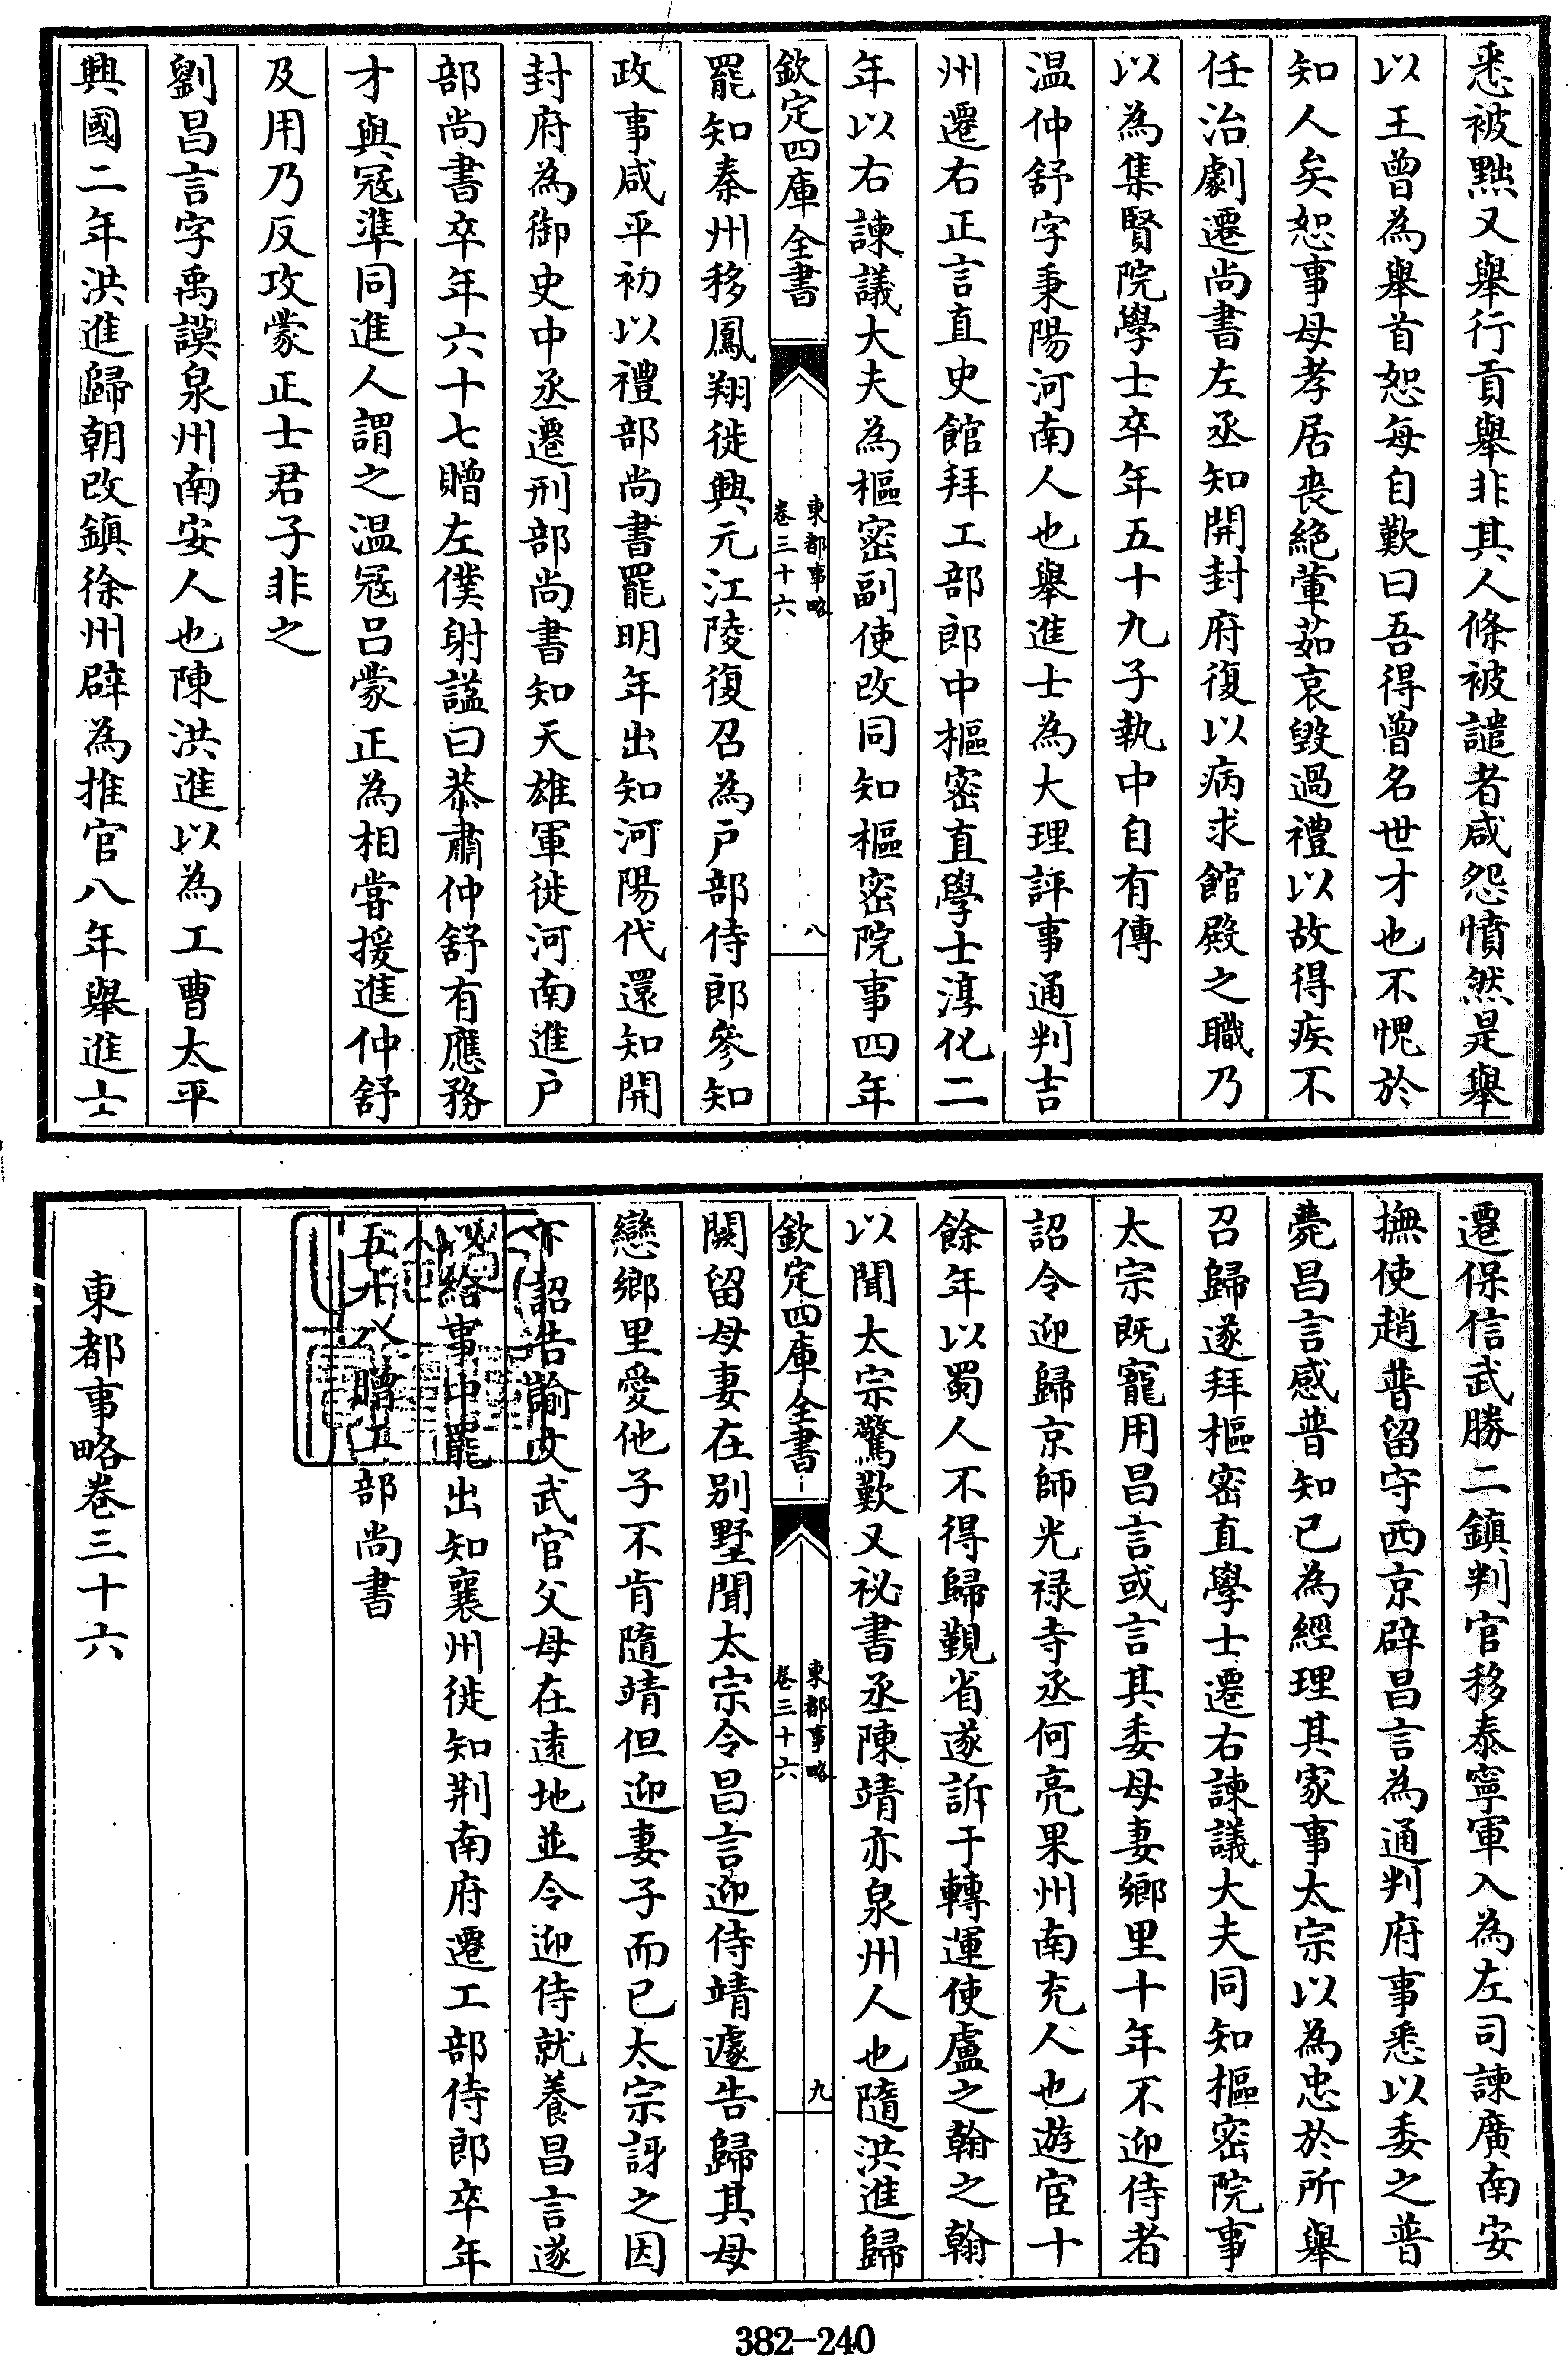 悉被黜又舉行貢舉非其人條被譴者咸怨憤然是舉
以王曾為舉首恕每自歎曰吾得曾名世才也不愧於
知人矣恕事母孝居喪絕葷茹哀毀過禮以故得疾不
任治劇遷尚書左丞知開封府復以病求館殿之職乃
以為集賢院學士卒年五十九子執中自有傳
温仲舒字秉陽河南人也舉進士為大理評事通判吉
州遷右正言直史館拜工部郎中樞密直學士淳化二
年以右諫議大夫為樞密副使改同知樞密院事四年
欽定四庫全書
東都事略
卷三十六
八
罷知秦州移鳳翔徙興元江陵復召為戶部侍郎參知
政事咸平初以禮部尚書罷明年出知河陽代還知開
封府為御史中丞遷刑部尚書知天雄軍徙河南進戶
部尚書卒年六十七贈左僕射諡曰恭肅仲舒有應務
才與冦準同進人謂之温冦吕蒙正為相嘗援進仲舒
及用乃反攻蒙正士君子非之
劉昌言字禹謨泉州南安人也陳洪進以為工曹太平
興國二年洪進歸朝改鎮徐州辟為推官八年舉進士
遷保信武勝二鎮判官移泰寧軍入為左司諫廣南安
撫使趙普留守西京辟昌言為通判府事悉以委之普
薨昌言感普知己為經理其家事太宗以為忠於所舉
召歸遂拜樞密直學士遷右諫議大夫同知樞密院事
太宗既寵用昌言或言其委母妻鄉里十年不迎侍者
詔令迎歸京師光禄寺丞何亮果州南充人也遊宦十
餘年以蜀人不得歸覲省遂訴于轉運使盧之翰之翰
以聞太宗驚歎又祕書丞陳靖亦泉州人也隨洪進歸
欽定四庫全書
東都事略
卷三十六
九
闕留母妻在别墅聞太宗令昌言迎侍靖遽告歸其母
戀鄉里愛他子不肯隨靖但迎妻子而已太宗訝之因
下詔告諭文武官父母在遠地並令迎侍就養昌言遂
以給事中罷出知襄州徙知荆南府遷工部侍郎卒年
五十八贈工部尚書
東都事略卷三十六
382-240